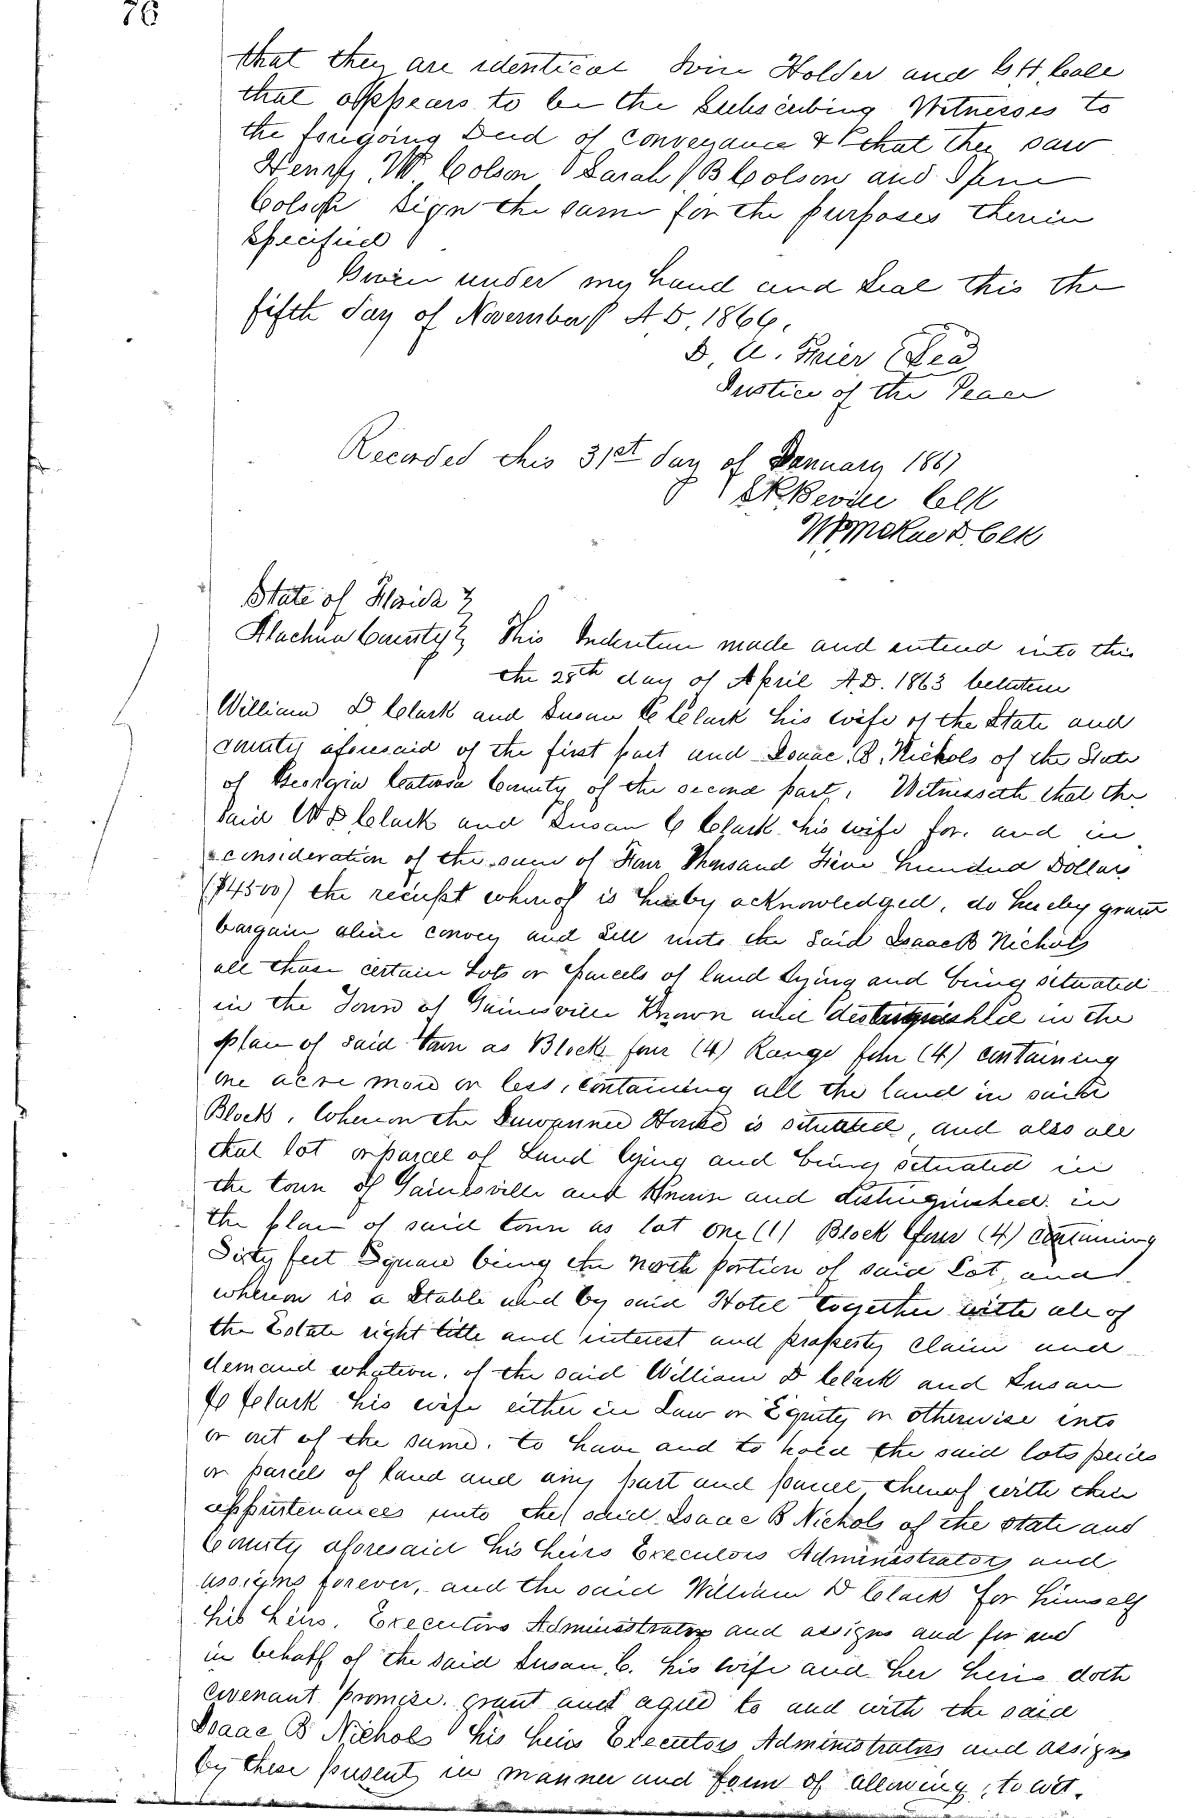 76
that they are identical Irvin Holder and G H Cole
that appears to be the Subscribing Witnesses to
the foregoing Deed of conveyance & that they saw
Henry W Colson Sarah B Colson and
Colson Sign the same for the purposes therein
Specified
Given under my hand and Seal this the
fifth day of November A.D. 1866.
D. U. Frier Seal
Justice of the Peace
Recorded this 31st day of January 1867
S K Beville Clk
W McRae D. Clk
State of Florida }
Alachua County } This Indenture made and entered into this
the 28th day of April A.D. 1863 between
William D Clark and Susan C Clark his wife of the State and
county aforesaid of the first part and Isaac B. Nichols of the State
of Georgia Catoosa County of the second part. Witnesseth that the
Said W D Clark and Susan C Clark his wife for and in
consideration of the sum of Four Thousand Five hundred Dollars
($4500) the receipt whereof is hereby acknowledged, do hereby grant
bargain alien convey and Sell unto the Said Isaac B Nichols
all those certain Lots or parcels of land lying and being situated
in the Town of Gainesville Known and distinguished in the
plan of said town as Block four (4) Range four (4) containing
one acre more or less, containing all the land in said
Block, Whereon the Suwannee House is situated, and also all
that lot or parcel of Land lying and being situated in
the town of Gainesville and Known and distinguished in
the plan of said town as lot one (1) Block four (4) containing
Sixty feet Square being the north portion of said Lot and
whereon is a Stable used by said Hotel together with all of
the Estate right title and interest and property claim and
demand whatever of the said William D Clark and Susan
C Clark his wife either in Law or Equity or otherwise into
or out of the same. to have and to hold the said lots peices
or parcels of land and any part and parcel thereof with their
appurtenances unto the said Isaac B Nichols of the State and
County aforesaid his heirs Executors Administrators and
assigns forever, and the said William D Clark for himself
his heirs, Executors Administrators and assigns and for and
in behalf of the said Susan C. his wife and her heirs doth
covenant promise grant and agree to and with the said
Isaac B Nichols his heirs Executors Administrators and assigns
by these presents in manner and form of allowing, to wit.